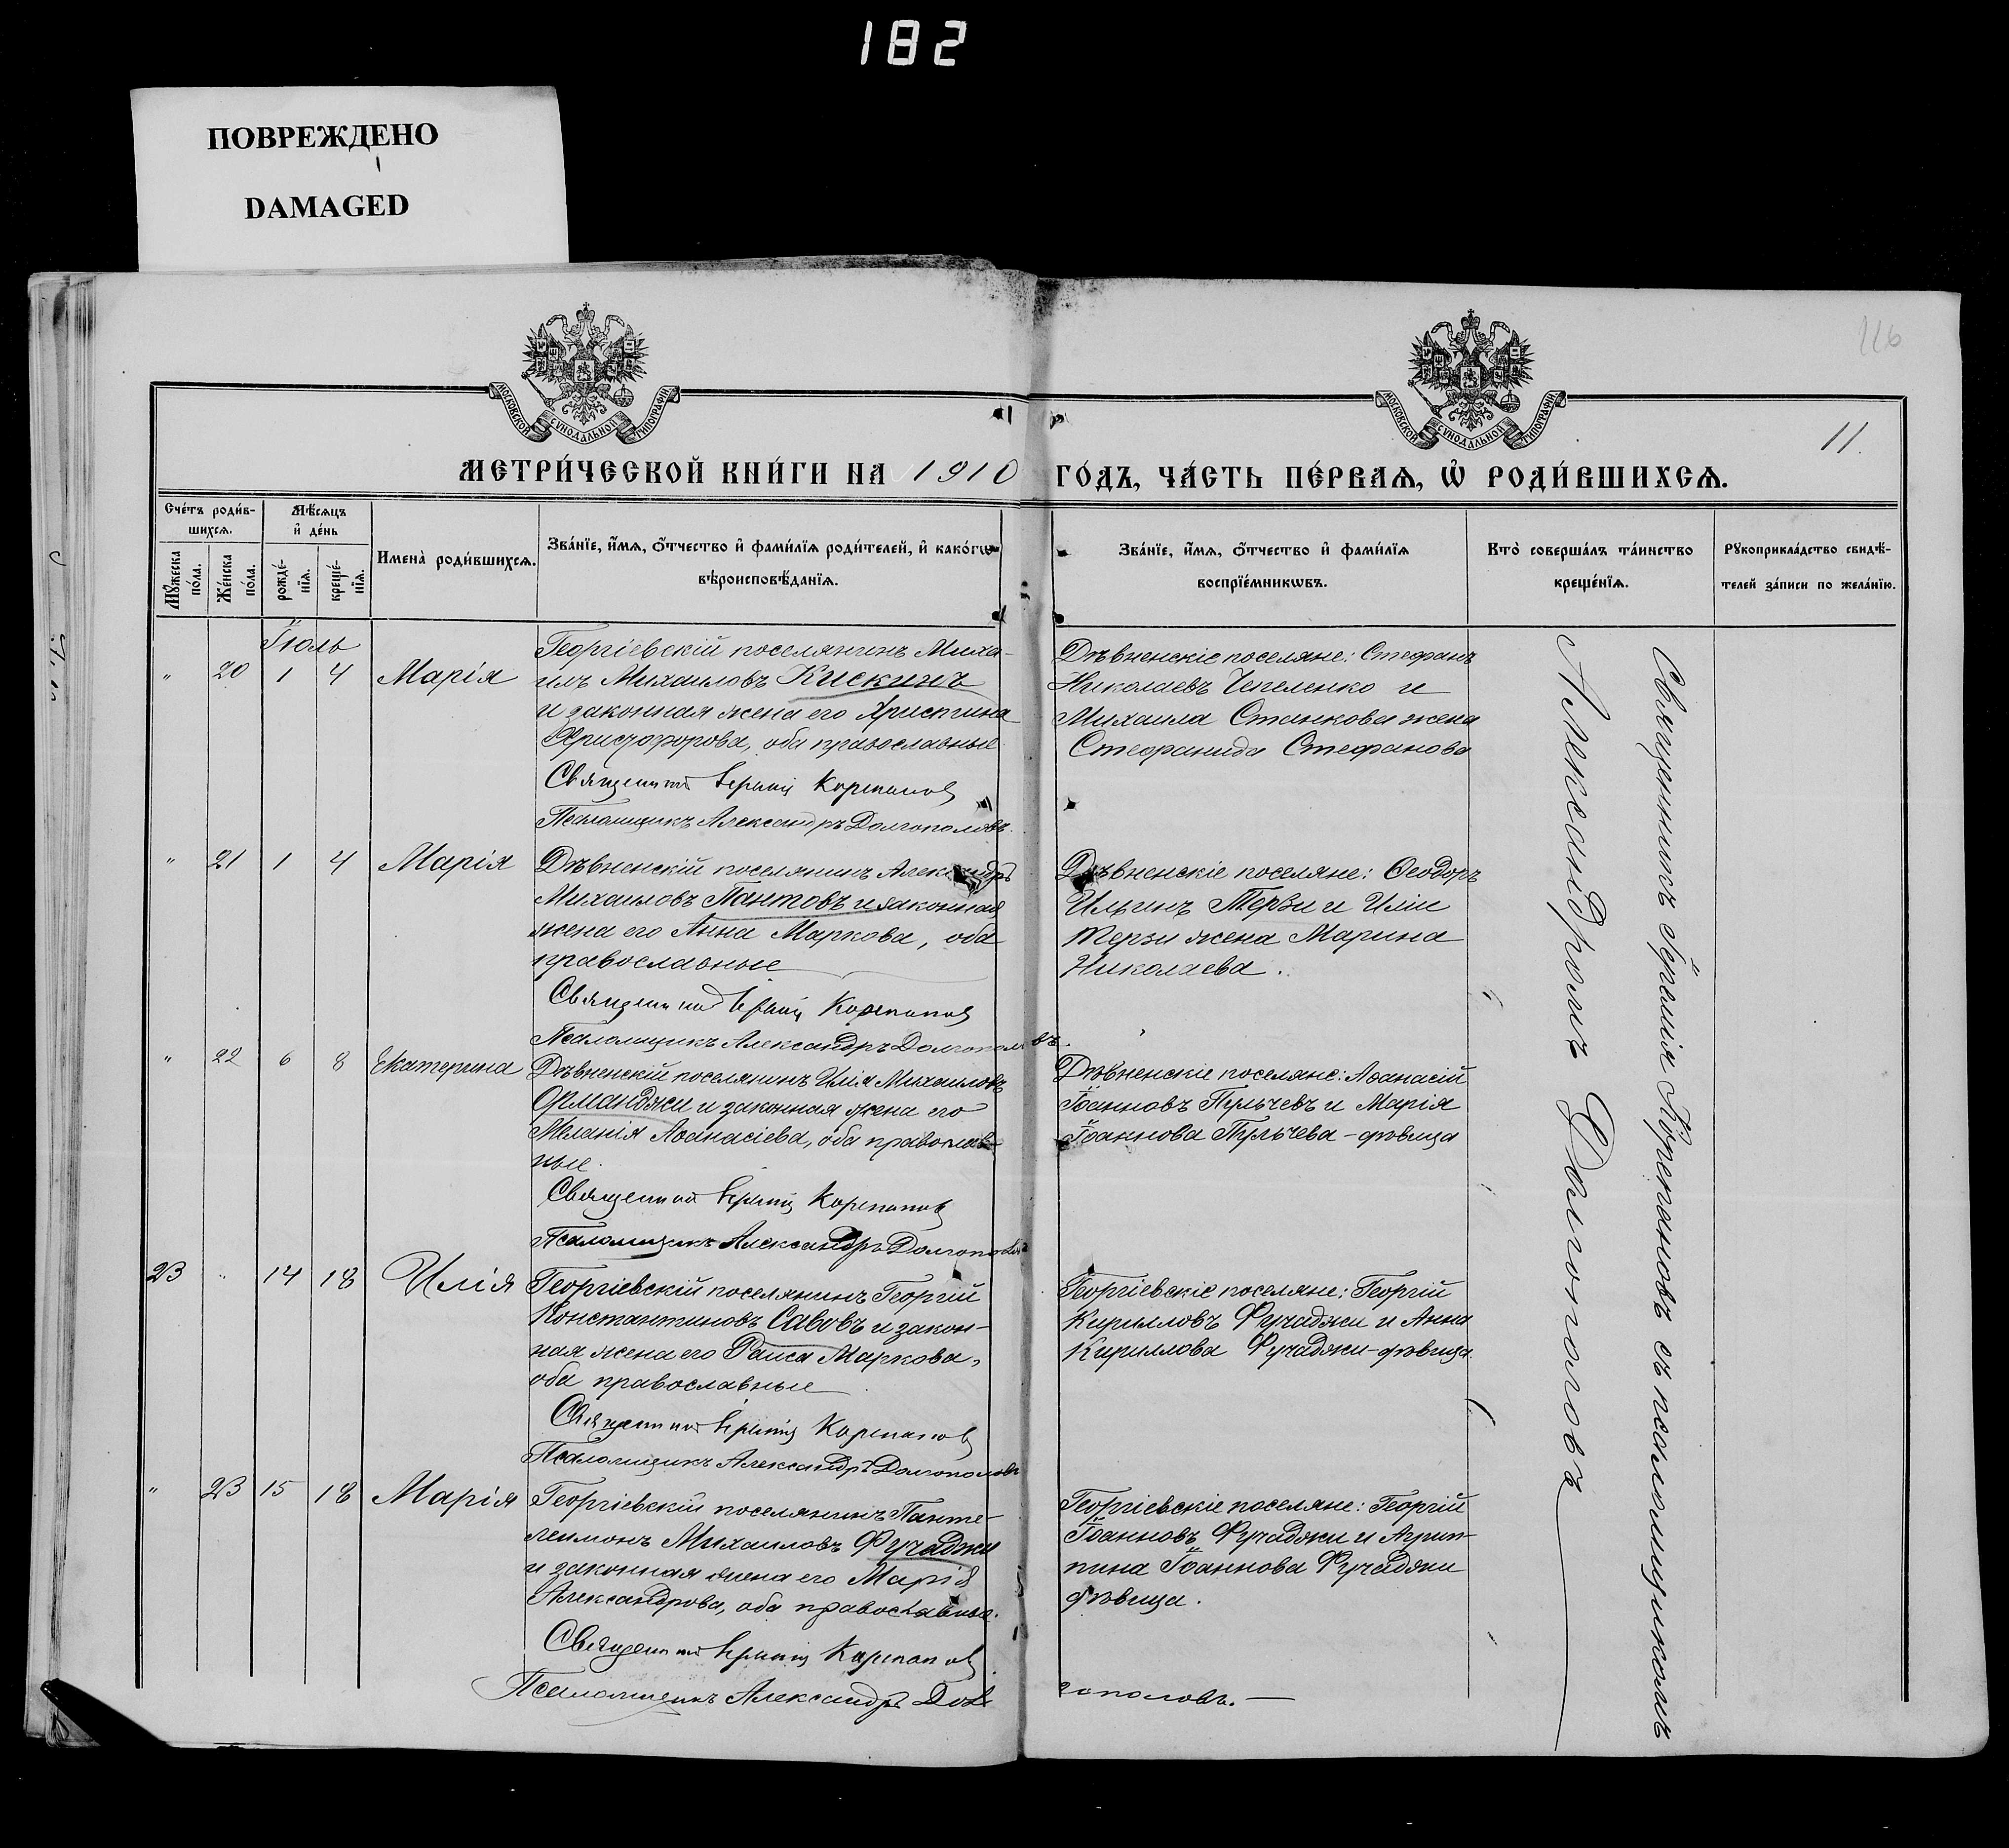 182
ПОВРЕЖДЕНО
DAMAGED
116
МОСКОВСКОЙ СѴНОДАЛЬНОЙ ТИПОГРАФІИ
МОСКОВСКОЙ СѴНОДАЛЬНОЙ ТИПОГРАФІИ
11.
МЕТРИ́ЧЕСКОЙ КНИ́ГИ НА 1910 ГО́ДЪ, ЧА́СТЬ ПЕ́РВАѦ, Ѡ҆ РОДИ́ВШИХСѦ.
Сче́тъ роди́в-
шихсѧ.
Мꙋжеска по́ла.
Же́нска по́ла.
Мѣ́сѧцъ
и҆ де́нь
рожде́-
нїѧ.
креще́-
нїѧ.
Имена̀ роди́вшихсѧ.
Зва́нїе, и҆́мѧ, ѻ҆́тчество и҆ фами́лїѧ роди́телей, и҆ како́гѡ
вѣроисповѣ́данїѧ.
Зва́нїе, и҆́мѧ, ѻ҆́тчество и҆ фами́лїѧ
воспрїе́мникѡвъ.
Кто̀ соверша́лъ та́инство
креще́нїѧ.
Рꙋкоприкла́дство свидѣ́-
телей за́писи по жела́нїю.
Іюль
" 20 1 4 Марія
Георгіевскій поселянинъ Миха-
илъ Михаиловъ Кискинъ
и законная жена его Христина
Христофорова, оба православные
Священникъ Іереміа Корепановъ
Псаломщикъ Александръ Долгополовъ.
Дѣвненскіе поселяне: Стефанъ
Николаевъ Чепеленко и
Михаила Станкова жена
Стефанида Стефанова
" 21 1 4 Марія
Дѣвненскій поселянинъ Александръ
Михаиловъ Пантовъ и законная
жена его Анна Маркова, оба
православные
Священникъ Іереміа Корепановъ
Псаломщикъ Александръ Долгополовъ.
Дѣвненскіе поселяне: Ѳеодоръ
Ильинъ Терзи и Иліи
Терзи жена Марина
Николаева.
" 22 6 8 Екатерина
Дѣвненскій поселянинъ Илія Михаиловъ
Орманджи и законная жена его
Меланія Аѳанасіева, оба православ-
ные.
Священникъ Іереміа Корепановъ
Псаломщикъ Александръ Долгополовъ
Дѣвненскіе поселяне: Аѳанасій
Іоанновъ Пульчевъ и Марія
Іоаннова Пульчева - дѣвица
23 " 14 18 Илія
Георгіевскій поселянинъ Георгій
Константиновъ Савовъ и закон-
ная жена его Раиса Маркова,
оба православные
Священникъ Іереміа Корепановъ
Псаломщикъ Александръ Долгополовъ
Георгіевскіе поселяне: Георгій
Кирилловъ Фучаджи и Анна
Кириллова Фучаджи-дѣвица.
" 23 15 18 Марія
Георгіевскій поселянинъ Панте-
леимонъ Михаиловъ Фучаджи
и законная жена его Марія
Александрова, оба православные.
Священникъ Іереміа Корепановъ
Псаломщикъ Александръ Долгополовъ.
Георгіевскіе поселяне: Георгій
Іоанновъ Фучаджи и Агрип-
пина Іоаннова Фучаджи
дѣвица.
Священникъ Іеремія Корепановъ съ псаломщикомъ
Александромъ Долгополовъ